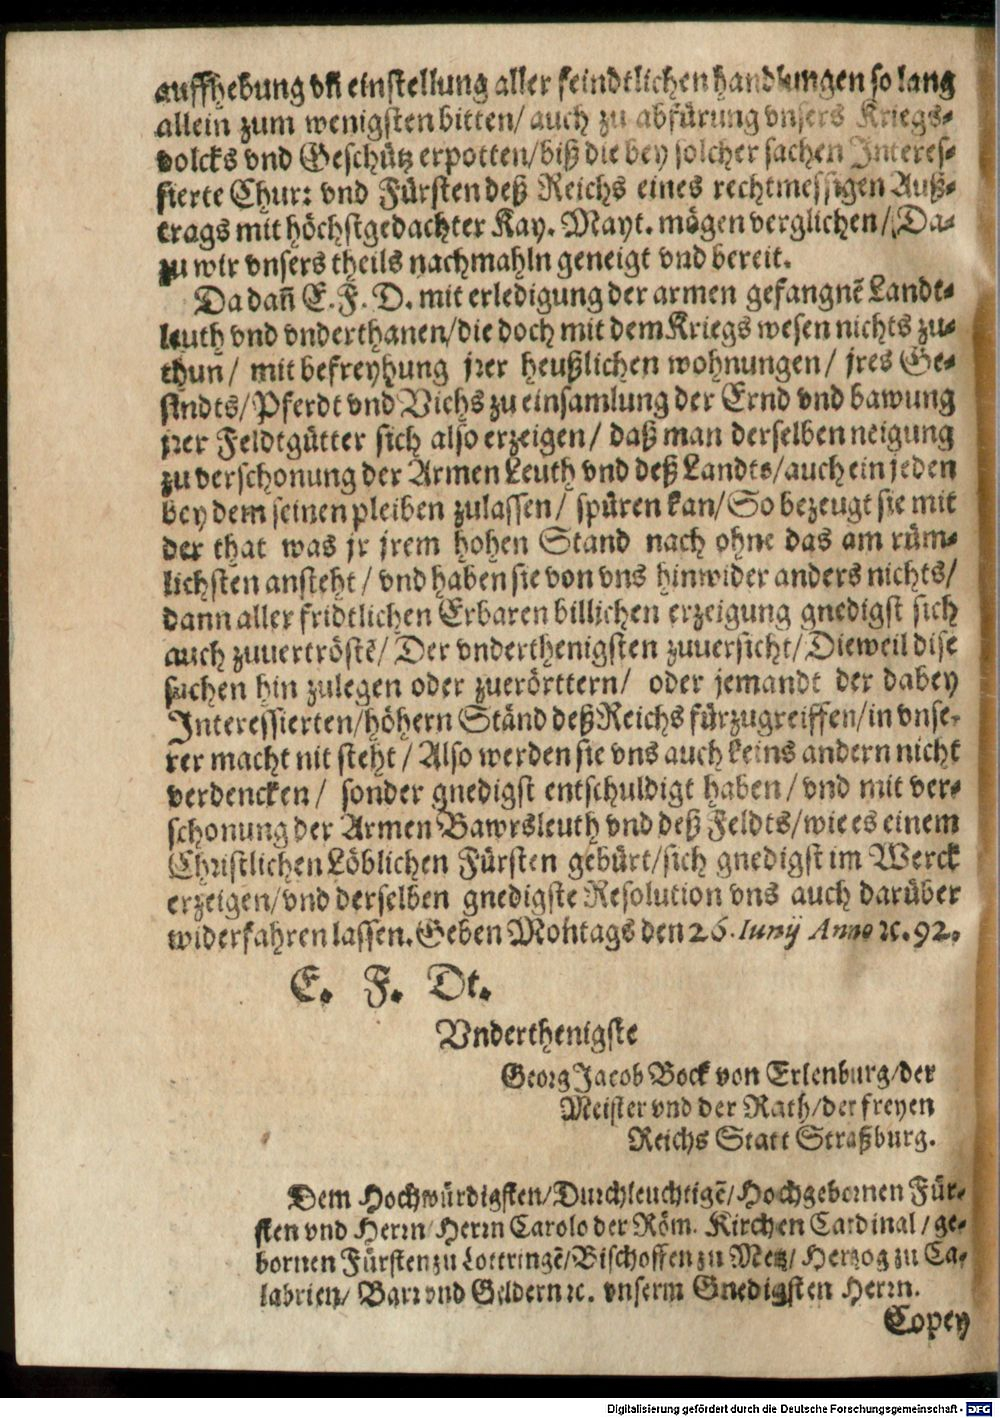 auffhebung vñ einstellung aller feindtlichen handlungen so lang
allein zum wenigsten bitten/ auch zu abfürung vnsers Kriegs-
volcks vnd Geschütz erpotten/ biß die bey solcher sachen Interes-
sierte Chur: vnd Fürsten deß Reichs eines rechtmessigen Auß-
trags mit höchstgedachter Kay. Mayt. mögen verglichen/ Da-
zu wir vnsers theils nachmahln geneigt vnd bereit.
Da dañ E. F. D. mit erledigung der armen gefangnẽ Landt-
leuth vnd vnderthanen/ die doch mit dem Kriegs wesen nichts zu-
thun/ mit befreyhung jrer heußlichen wohnungen/ jres Ge-
sindts/ Pferdt vnd Vichs zu einsamlung der Ernd vnd bawung
jrer Feldtgütter sich also erzeigen/ daß man derselben neigung
zu verschonung der Armen Leuth vnd deß Landts/ auch ein jeden
bey dem seinen pleiben zulassen/ spüren kan/ So bezeugt sie mit
der that was jr jrem hohen Stand nach ohne das am rüm-
lichsten ansteht/ vnd haben sie von vns hinwider anders nichts/
dann aller fridtlichen Erbaren billichen erzeigung gnedigst sich
auch zuuertröstẽ/ Der vnderthenigsten zuuersicht/ Dieweil dise
sachen hin zulegen oder zuerörttern/ oder jemandt der dabey
Interessierten/ höhern Ständ deß Reichs fürzugreiffen/ in vnse-
rer macht nit steht/ Also werden sie vns auch keins andern nicht
verdencken/ sonder gnedigst entschuldigt haben/ vnd mit ver-
schonung der Armen Bawrsleuth vnd deß Feldts/ wie es einem
Christlichen Löblichen Fürsten gebürt/ sich gnedigst im Werck
erzeigen/ vnd derselben gnedigste Resolution vns auch darüber
widerfahren lassen. Geben Mohtags den 26. Iunij Anno ꝛc. 92.
E. F. Dt.
Vnderthenigste
Georg Jacob Bock von Erlenburg/ der
Meister vnd der Rath/ der freyen
Reichs Statt Straßburg.
Dem Hochwürdigsten/ Durchleuchtigẽ/ Hochgebornen Für-
sten vnd Herrn/ Herrn Carolo der Röm. Kirchen Cardinal/ ge-
bornen Fürsten zu Lottringẽ/ Bischoffen zu Metz/ Hertzog zu Ca-
labrien/ Barr vnd Geldern ꝛc. vnserm Gnedigsten Herrn.
Copey
Digitalisierung gefördert durch die Deutsche Forschungsgemeinschaft - DFG